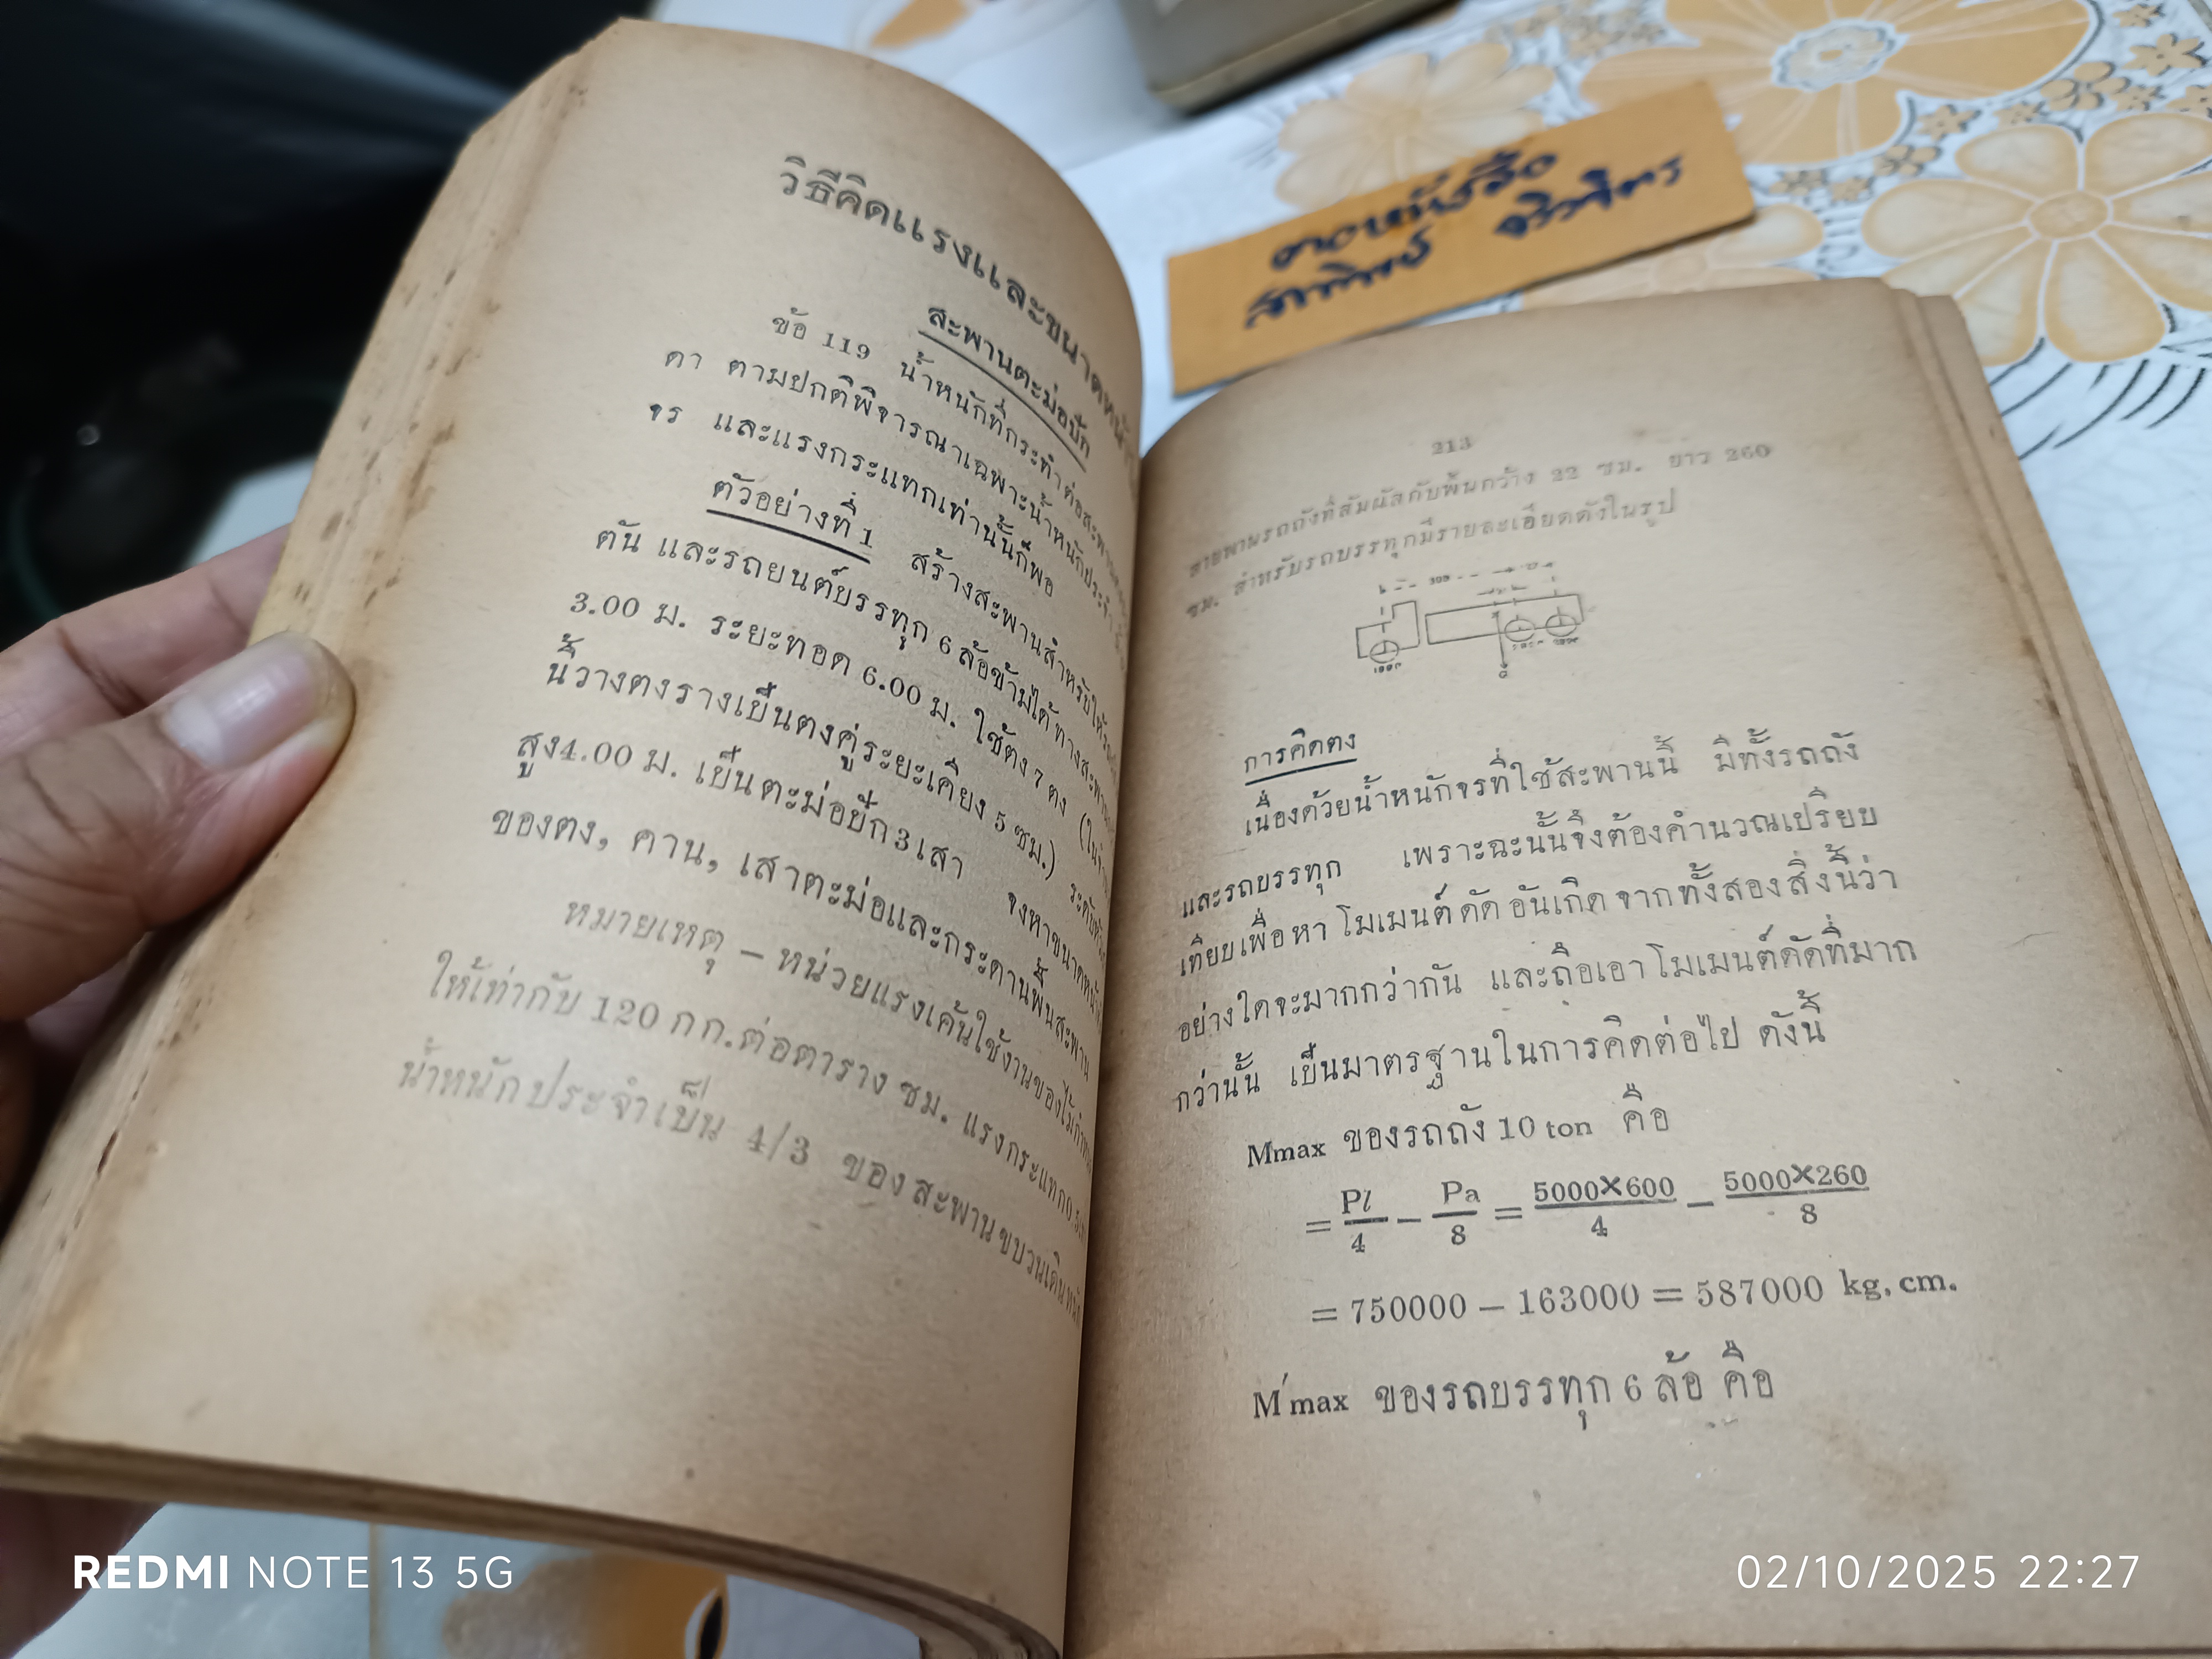 วิธีคิดแรงและขนาดหน้า
สะพานตะม่อปัก
ข้อ 119 น้ำหนักที่กระทำต่อสะพาน
ดา ตามปกติพิจารณาเฉพาะน้ำหนักประจำ
จร และแรงกระแทกเท่านั้นก็พอ
ตัวอย่างที่ 1 สร้างสะพานสำหรับให้
ตัน และรถยนต์บรรทุก 6 ล้อข้ามได้ ทางสะพาน
3.00 ม. ระยะทอด 6.00 ม. ใช้ตง 7 ตง
นี้วางตงรางเป็นตงคู่ระยะเคียง 5 ซม.)
สูง 4.00 ม. เป็นตะม่อปัก 3 เสา จงหาขนาดหน้า
ของตง, คาน, เสาตะม่อและกระดานพื้นสะพาน
หมายเหตุ – หน่วยแรงเค้นใช้งานของไม้กำหนด
ให้เท่ากับ 120 กก.ต่อตาราง ซม. แรงกระแทก
น้ำหนักประจำเป็น 4/3 ของสะพานขบวนเดิน
213
สายพานรถถังที่สัมผัสกับพื้นกว้าง 22 ซม. ยาว 260
ซม. สำหรับรถบรรทุกมีรายละเอียดดังในรูป
การคิดตง
เนื่องด้วยน้ำหนักจรที่ใช้สะพานนี้ มีทั้งรถถัง
และรถบรรทุก เพราะฉะนั้นจึงต้องคำนวณเปรียบ
เทียบเพื่อหาโมเมนต์ดัดอันเกิดจากทั้งสองสิ่งนี้ว่า
อย่างใดจะมากกว่ากัน และถือเอาโมเมนต์ดัดที่มาก
กว่านั้น เป็นมาตรฐานในการคิดต่อไป ดังนี้
Mmax ของรถถัง 10 ton คือ
= Pl/4 – Pa/8 = 5000×600/4 – 5000×260/8
= 750000 – 163000 = 587000 kg. cm.
M′max ของรถบรรทุก 6 ล้อ คือ
REDMI NOTE 13 5G
02/10/2025 22:27